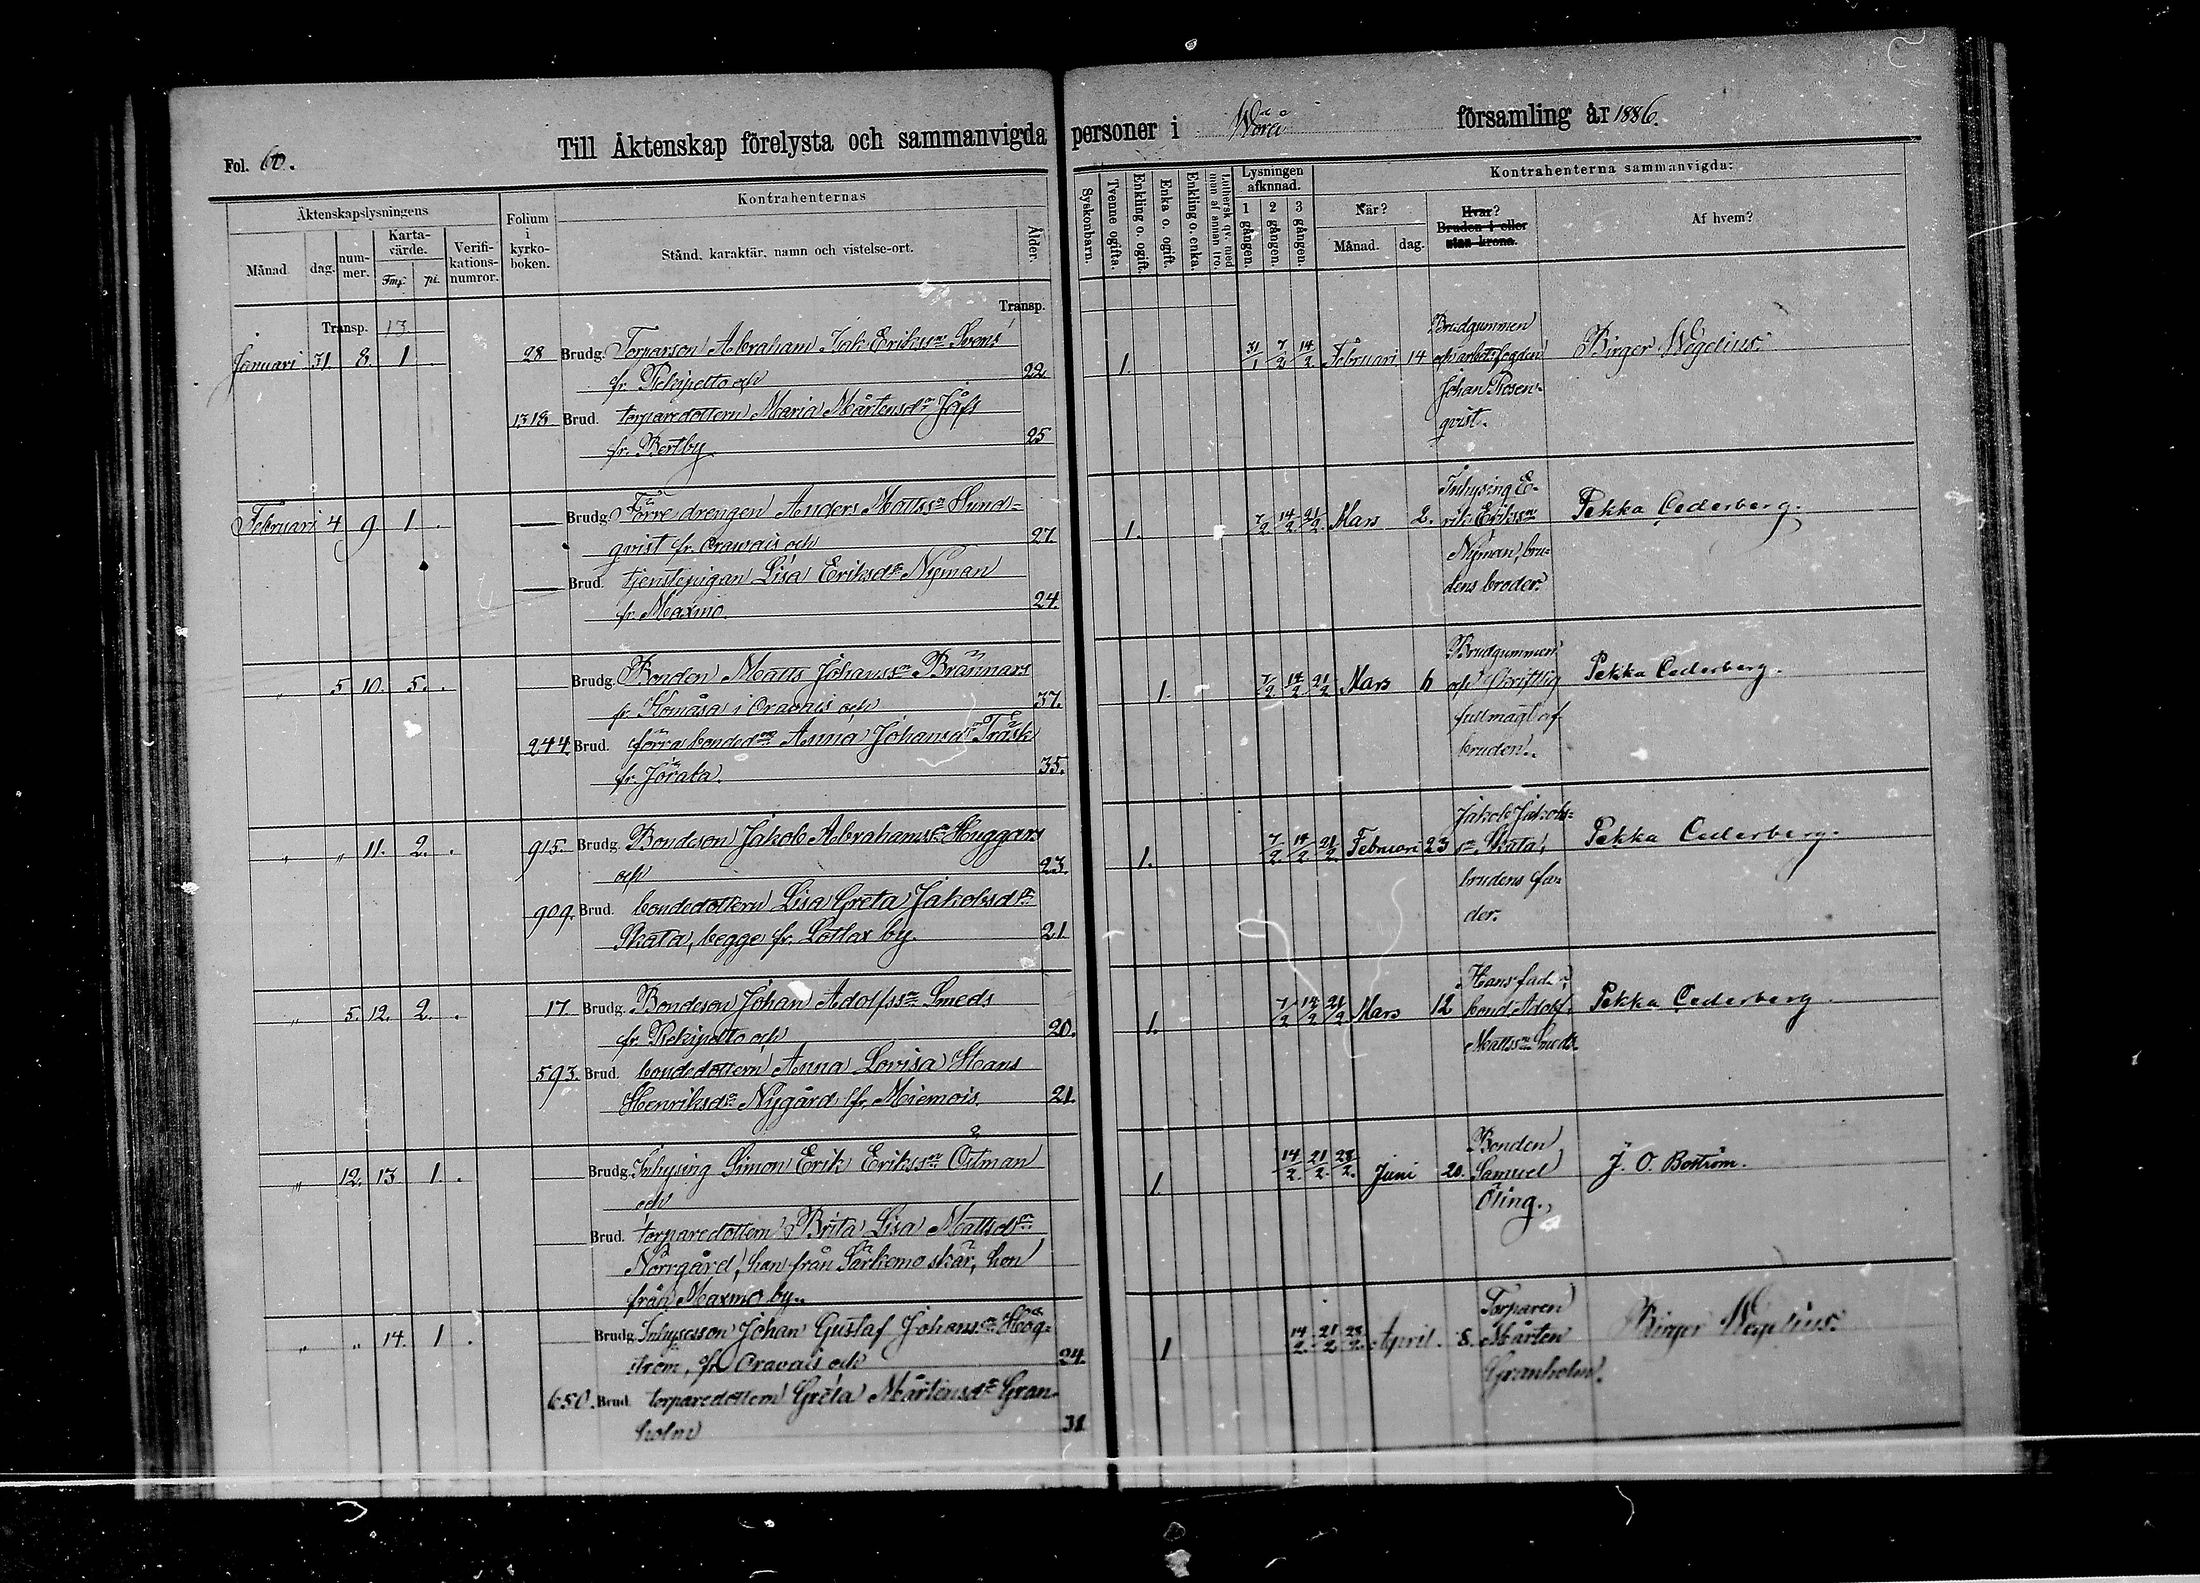 Fol. 60.
Till Äktenskap förelysta och sammanvigda personer i Wörå församling år 1886.
Äktenskapslysningens
Månad
dag.
nummer.
Kartavärde.
Fmf. pi.
Verifikationsnumror.
Folium i kyrkoboken.
Kontrahenternas
Stånd, karaktär, namn och vistelse-ort.
Ålder.
Syskonbarn.
Tvenne ogifta.
Enkling o. ogift.
Enka o. ogift.
Enkling o. enka.
Luthersk qv. med man af annan tro.
Lysningen afknnad.
1 gången.
2 gången.
3 gången.
Kontrahenterna sammanvigda:
När?
Månad.
dag.
Hvar?
Bruden i eller utan krona.
Af hvem?
Transp. 13. Transp.
Januari 31. 8. 1 . 28 Brudg. Torparson Abraham Jak Erikss:n Svens
fr. Rekipelto och 22
1318 Brud. torparedottern Maria Mårtensd:r Jåfs
fr. Bertby 25
1. 31/1 7/2 14/2 Februari 14
Brudgummen
och arbetsfogden
Johan Rosen-
qvist.
Birger Wegelius.
Februari 4 9 1 . Brudg. Förre drengen Anders Matts:n Hund-
qvist fr. Oravais och 27
Brud. tjenstepigan Lisa Eriksd:r Nyman
fr. Maxmo. 24.
1. 7/2 14/2 21/2 Mars 2.
Inhysing E-
rik Erikss:n
Nyman, bru-
dens broder.
Pekka Cederberg.
" 5 10. 5. . Brudg. Bonden Matts Johanss:n Brännars
fr. Komåsa i Oravais och 37.
244. Brud. förra bonded:n Anna Johansd:r Träsk
fr. Jörala. 35.
1. 7/2 14/2 21/2 Mars 6
Brudgummen
och skriftlig
fullmagt af
bruden.
Pekka Cederberg.
" " 11. 2. . 915. Brudg. Bondeson Jakob Abrahamss:n Huggars
och 23.
909. Brud. bondedottern Lisa Greta Jakobsd:r
Skata, begge fr. Lotlax by. 21
1. 7/2 14/2 21/2 Februari 23
Jakob Jakobs-
s:n Skata,
brudens fa-
der.
Pekka Cederberg.
" 5. 12. 2. . 17. Brudg. Bondeson Johan Adolfss:n Smeds
fr. Rekipelto och 20.
593. Brud. bondedottern Anna Lovisa Hans
Henriksd:r Nygård fr. Miemois. 21.
1. 7/2 14/2 21/2 Mars 12
Hans fader,
bond. Adolf
Matss:n Smeds.
Pekka Cederberg.
" 12. 13 1. . Brudg. Inhysing Simon Erik Erikss:n Östman
och
Brud. torparedottern Brita Lisa Mattsd:r
Norrgård, han från Särkemo skär, hon
från Maxmo by.
1. 14/2. 21/2. 28/2. Juni 20.
Bonden
Samuel
Öling.
J. O. Boström.
" " 14. 1 . Brudg. Inhysesson Johan Gustaf Johanss:n Hög-
ström, fr. Oravais och 24.
650. Brud. torparedottern Greta Mårtensd:r Gran-
holm 31
1 14/2. 21/2 28/2. April. 8.
Torparen
Mårten
Granholm.
Birger Wegelius.